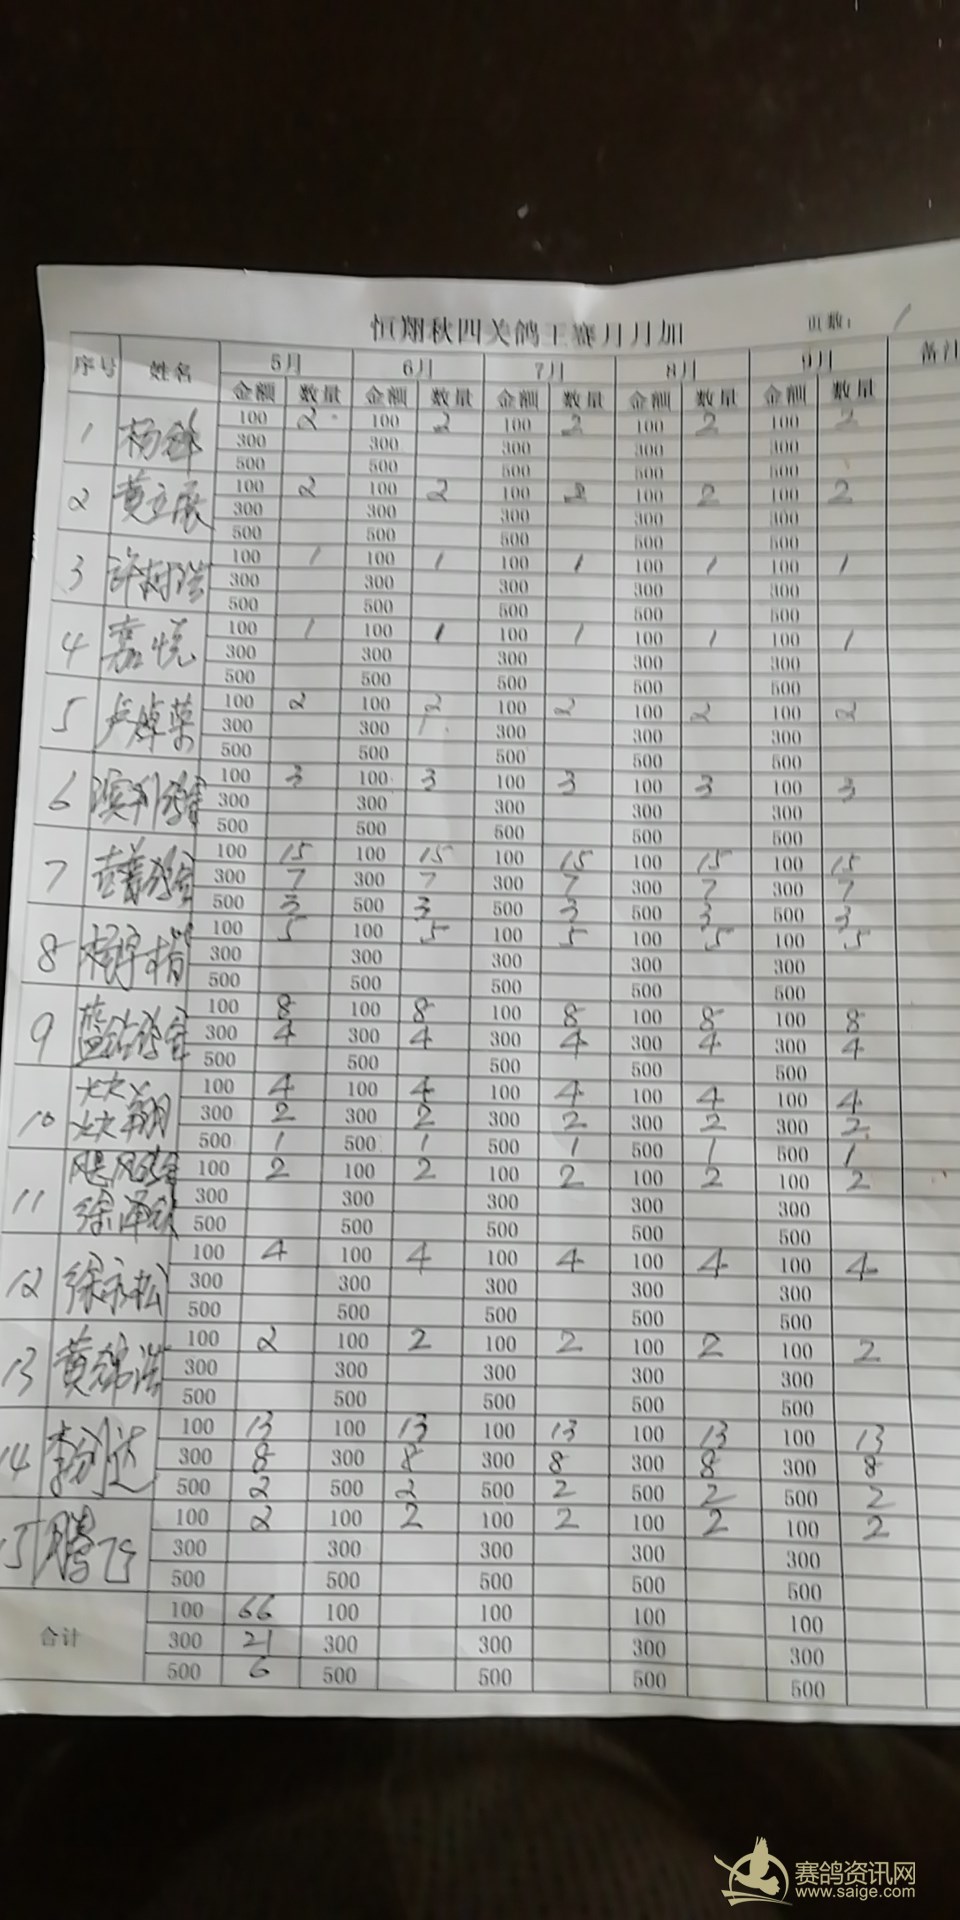 恒翔秋四关鸽王赛月月加 页数: 1
序号 姓名 5月 6月 7月 8月 9月 备注
金额 数量 金额 数量 金额 数量 金额 数量 金额 数量
1 杨 100 2 100 2 100 2 100 2 100 2
300 300 300 300 300
500 500 500 500 500
2 黄立展 100 2 100 2 100 2 100 2 100 2
300 300 300 300 300
500 500 500 500 500
3 许树浩 100 1 100 1 100 1 100 1 100 1
300 300 300 300 300
500 500 500 500 500
4 嘉悦 100 1 100 1 100 1 100 1 100 1
300 300 300 300 300
500 500 500 500 500
5 卢 100 2 100 2 100 2 100 2 100 2
300 300 1 300 300 300
500 500 500 500 500
6 100 3 100 3 100 3 100 3 100 3
300 300 300 300 300
500 500 500 500 500
7 100 15 100 15 100 15 100 15 100 15
300 7 300 7 300 7 300 7 300 7
500 3 500 3 500 3 500 3 500 3
8 杨 100 5 100 5 100 5 100 5 100 5
300 300 300 300 300
500 500 500 500 500
9 蓝钻鸽舍 100 8 100 8 100 8 100 8 100 8
300 4 300 4 300 4 300 4 300 4
500 500 500 500 500
10 100 4 100 4 100 4 100 4 100 4
翔 300 2 300 2 300 2 300 2 300 2
500 1 500 1 500 1 500 1 500 1
11 飓风鸽舍 100 2 100 2 100 2 100 2 100 2
徐泽 300 300 300 300 300
500 500 500 500 500
12 徐永松 100 4 100 4 100 4 100 4 100 4
300 300 300 300 300
500 500 500 500 500
13 黄锦浩 100 2 100 2 100 2 100 2 100 2
300 300 300 300 300
500 500 500 500 500
14 李 达 100 13 100 13 100 13 100 13 100 13
300 8 300 8 300 8 300 8 300 8
500 2 500 2 500 2 500 2 500 2
15 腾飞 100 2 100 2 100 2 100 2 100 2
300 300 300 300 300
500 500 500 500 500
合计 100 66 100 100 100 100
300 21 300 300 300 300
500 6 500 500 500 500
赛鸽资讯网
www.saige.com